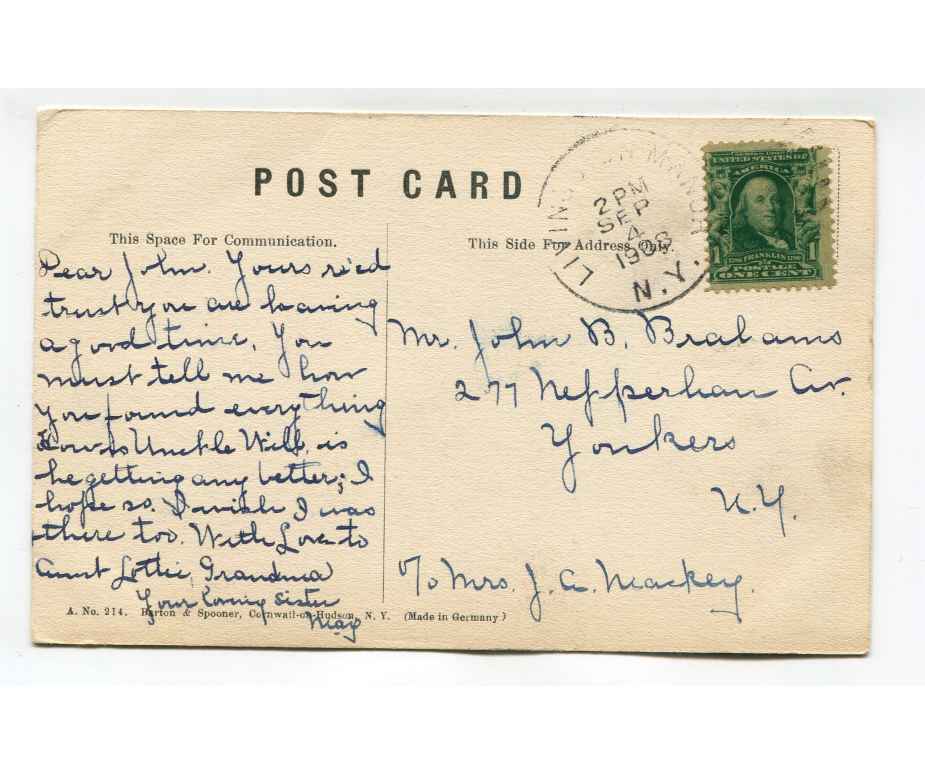 POST CARD
This Space For Communication.
This Side For Address Only.
LIVINGSTON MANOR
N.Y.
2 PM
SEP
4
1908
UNITED STATES OF
AMERICA
1706 FRANKLIN 1790
POSTAGE
1 ONE CENT 1
Dear John. Yours re'ed
trust you are having
a good time. You
must tell me how
you found everything
How is Uncle Will, is
he getting any better; I
hope so. I wish I was
there too. With Love to
Aunt Lottie, Grandma
Your loving sister
May
Mr. John B. Brahams
277 Nepperhan Av.
Yonkers
N.Y.
c/o Mrs. J. A. Mackey.
A. No. 214. Barton & Spooner, Cornwall-on-Hudson, N. Y. (Made in Germany)